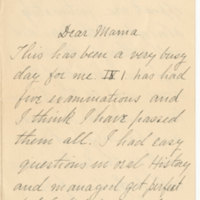 Dear Mama
This has been a very busy
day for me IV 1 has had
five examinations and
I think I have passed
them all. I had easy
questions in oral History
and managed get perfect